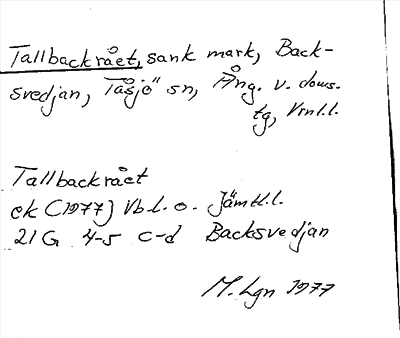 Tallbackrået, sank mark, Back-
svedjan, Tåsjö sn, Ång. v. doms.
tg, Vrnl.l.
Tallbackrået
ek (1977) Vb.l. o. Jämtl.l.
21G 4-5 c-d Backsvedjan
M. Lgn 1977